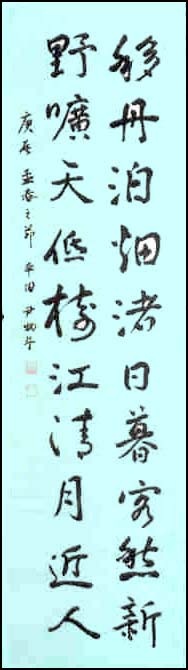 移舟泊烟渚日暮客愁新
野曠天低樹江清月近人
庚辰孟春之節